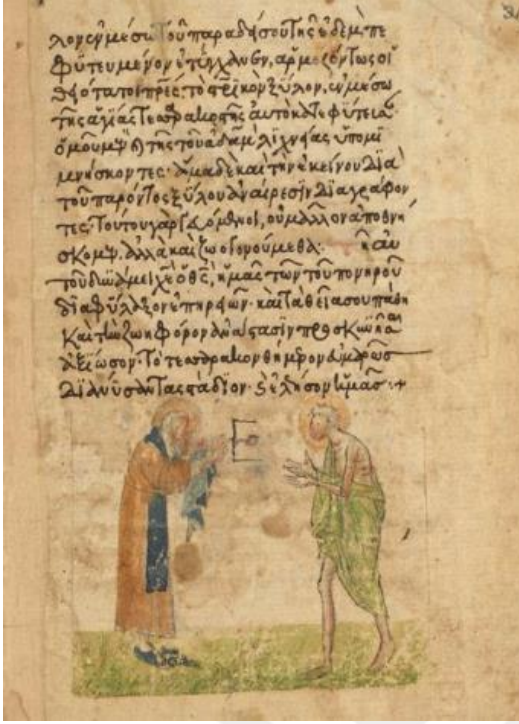 λον ἐν μέσω τοῦ παραδείσου τῆς ἐδὲμ πε
φυτευμένον ἐτύγχανεν, ἁρμοζόντως οἱ
θειότατοι πρες· τὸ στικὸν ξύλον, ἐν μέσω
τῆς ἁγίας τεσσρακοστῆς αὐτὸ κατεφύτευσαν
ὁμοῦ μὲν τῆς τοῦ ἀδὰμ λιχνείας ὑπομι
μνήσκοντες· ἅμα δὲ καὶ τὴν ἐκείνου διὰ
τοῦ παρόντος ξύλου ἀναίρεσιν διαγράφον
τες· τούτου γὰρ γευόμενοι, οὐ μᾶλλον ἀποθνή
σκομεν, ἀλλὰ καὶ ζωογονούμεθα· ἧ αὐ
τοῦ δυνάμει χὲ ὁ θς, ἡμᾶς τῶν τοῦ πονηροῦ
διαφύλαξον ἐπηρειῶν· καὶ τὰ θεῖα σου πάθη
καὶ τὴν ζωηφόρον ἀνάστασιν προσκυνῆσαι
ἀξίωσον· τὸ τεσσρακονθήμερον εὐμαρῶς
διανύσαντας στάδιον· καὶ ἐλέησον ἡμᾶς:+